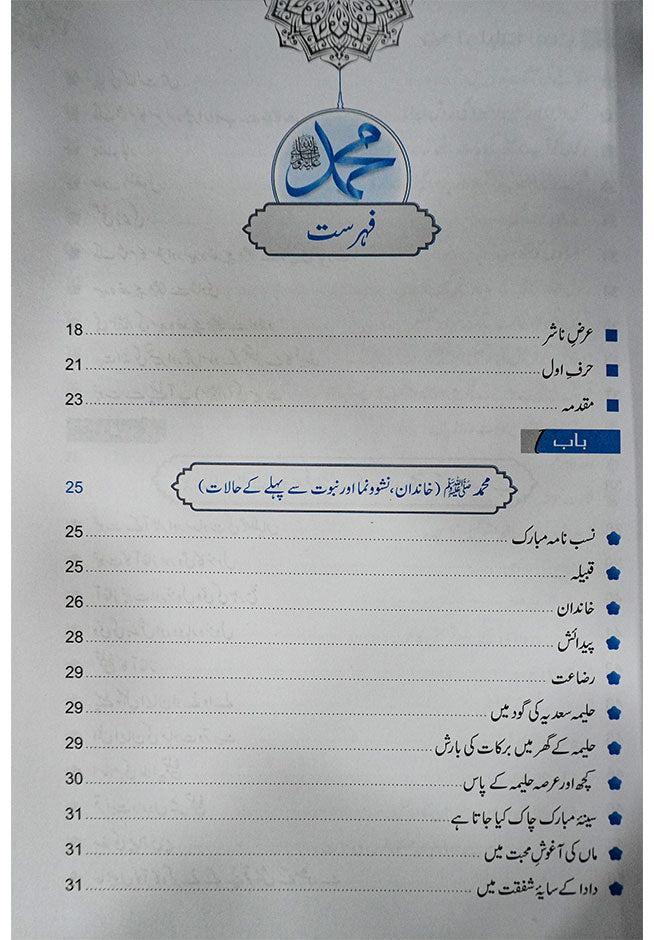 محمد ﷺ
فہرست
عرضِ ناشر 18
حرفِ اول 21
مقدمہ 23
باب
محمد ﷺ (خاندان، نشوونما اور نبوت سے پہلے کے حالات) 25
نسب نامہ مبارک 25
قبیلہ 25
خاندان 26
پیدائش 28
رضاعت 29
حلیمہ سعدیہ کی گود میں 29
حلیمہ کے گھر میں برکات کی بارش 29
کچھ اور عرصہ حلیمہ کے پاس 30
سینۂ مبارک چاک کیا جاتا ہے 31
ماں کی آغوشِ محبت میں 31
دادا کے سایۂ شفقت میں 31